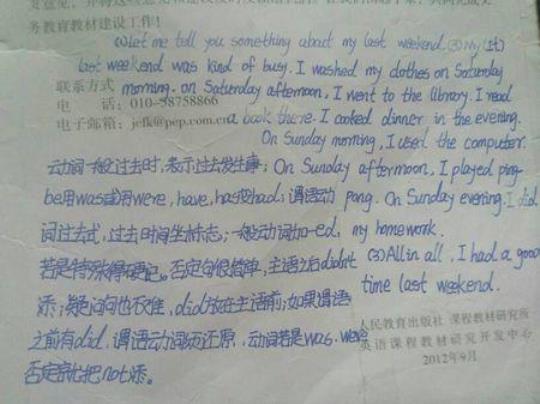 务教育教材建设工作!
(1)Let me tell you something about my last weekend. (2) My (It)
last weekend was kind of busy. I washed my clothes on Saturday
联系方式
morning. on Saturday afternoon, I went to the library. I read
电 话: 010-58758866
a book there. I cooked dinner in the evening.
电子邮箱: jcfk@pep.com.cn
On Sunday morning, I used the computer.
动词一般过去时,表示过去发生事;
On Sunday afternoon, I played ping-
be用was或用were, have, has变had; 谓语动
pong. On Sunday evening. I did
词过去式,过去时间坐标志;一般动词加-ed,
my homework.
若是特殊得硬记。否定句很简单,主语之后didn't
(3) All in all, I had a good
添;疑问句也不难,did放在主语前;如果谓语
time last weekend.
之前有did,谓语动词须还原,动词若是was. were
人民教育出版社 课程教材研究所
英语课程教材研究开发中心
否定就把not添。
2012年9月